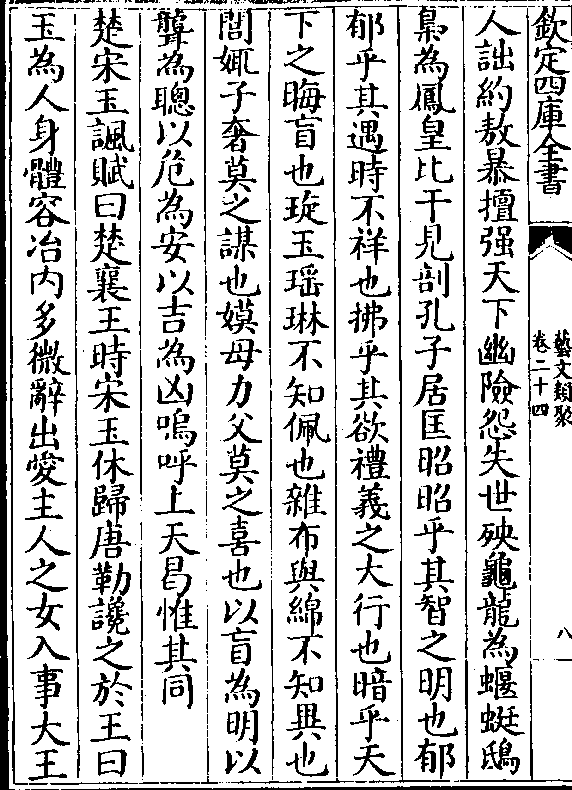 欽定四庫全書
藝文類聚
卷二十四
八
人詘約敖暴擅强天下幽險怨失世殃龜龍為蝘蜓鴟
梟為鳳皇比干見剖孔子居匡昭昭乎其智之明也郁
郁乎其遇時不祥也拂乎其欲禮義之大行也暗乎天
下之晦盲也琁玉瑶琳不知佩也雜布與綿不知異也
閭娵子奢莫之謀也嫫母力父莫之喜也以盲為明以
聾為聰以危為安以吉為凶嗚呼上天曷惟其同
楚宋玉諷賦曰楚襄王時宋玉休歸唐勒讒之於王曰
玉為人身體容冶内多微辭出愛主人之女入事大王